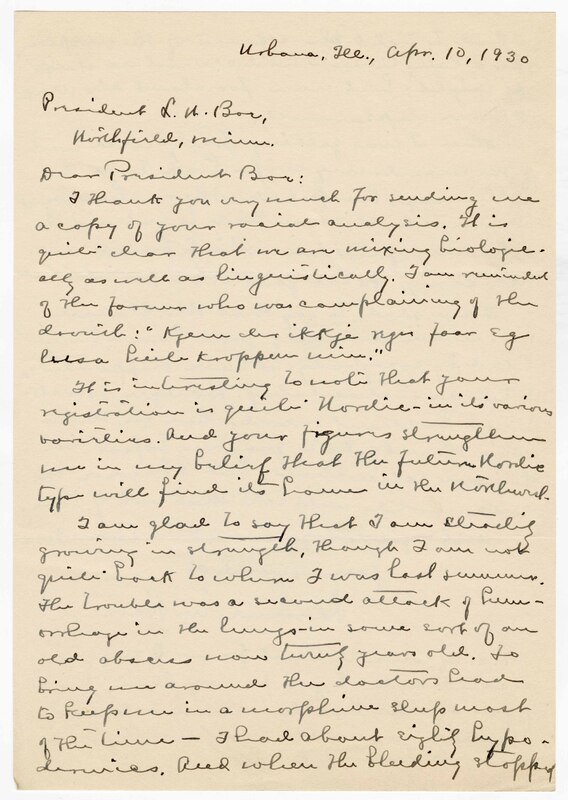 Urbana, Ill., Apr. 10, 1930
President L. W. Boe,
Northfield, Minn.
Dear President Boe:
I thank you very much for sending me
a copy of your racial analysis. It is
quite clear that we are mixing biologic-
ally as well as linguistically. I am reminded
of the farmer who was complaining of the
drouth: "Kjem der ikkje regn faar eg
lusa heile kroppen min."
It is interesting to note that your
registration is quite Nordic - in its various
varieties. And your figures strengthen
me in my belief that the future Nordic
type will find its home in the Northwest.
I am glad to say that I am steadily
growing in strength, though I am not
quite back to where I was last summer.
The trouble was a second attack of hem-
orrhage in the lungs - in some sort of an
old abscess now twenty years old. To
bring me around the doctors had
to keep me in a morphine sleep most
of the time — I had about eighty hypo-
dermics. And when the bleeding stopped